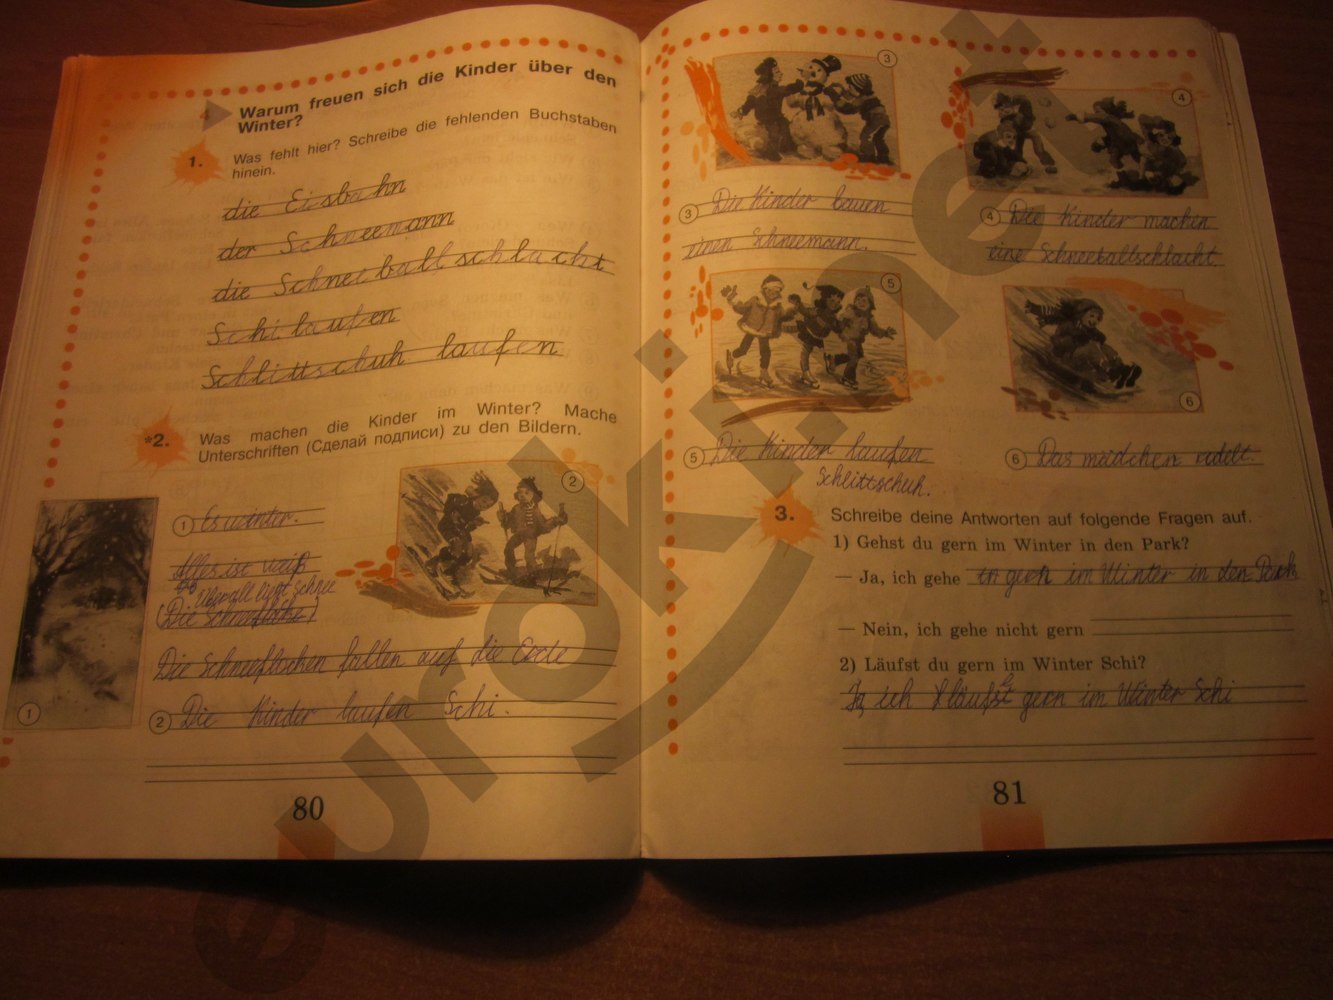 4 Warum freuen sich die Kinder über den
Winter?
1. Was fehlt hier? Schreibe die fehlenden Buchstaben
hinein.
die Eisbahn
der Schneemann
die Schneeballschlacht
Schi laufen
Schlittschuh laufen
*2. Was machen die Kinder im Winter? Mache
Unterschriften (Сделай подписи) zu den Bildern.
1 Es winter.
Alles ist weiß
Überall liegt Schnee
(Die Schneeflocke)
Die Schneeflocken fallen auf die Erde
2 Die Kinder laufen Schi.
1
2
80
3
4
3 Die Kinder bauen
einen Schneemann.
4 Die Kinder machen
eine Schneeballschlacht.
5
6
5 Die Kinder laufen
Schlittschuh.
6 Das mädchen rodelt.
3. Schreibe deine Antworten auf folgende Fragen auf.
1) Gehst du gern im Winter in den Park?
— Ja, ich gehe gern im Winter in den Park
— Nein, ich gehe nicht gern
2) Läufst du gern im Winter Schi?
Ja, ich gern im Winter Schi
81
eurokinet